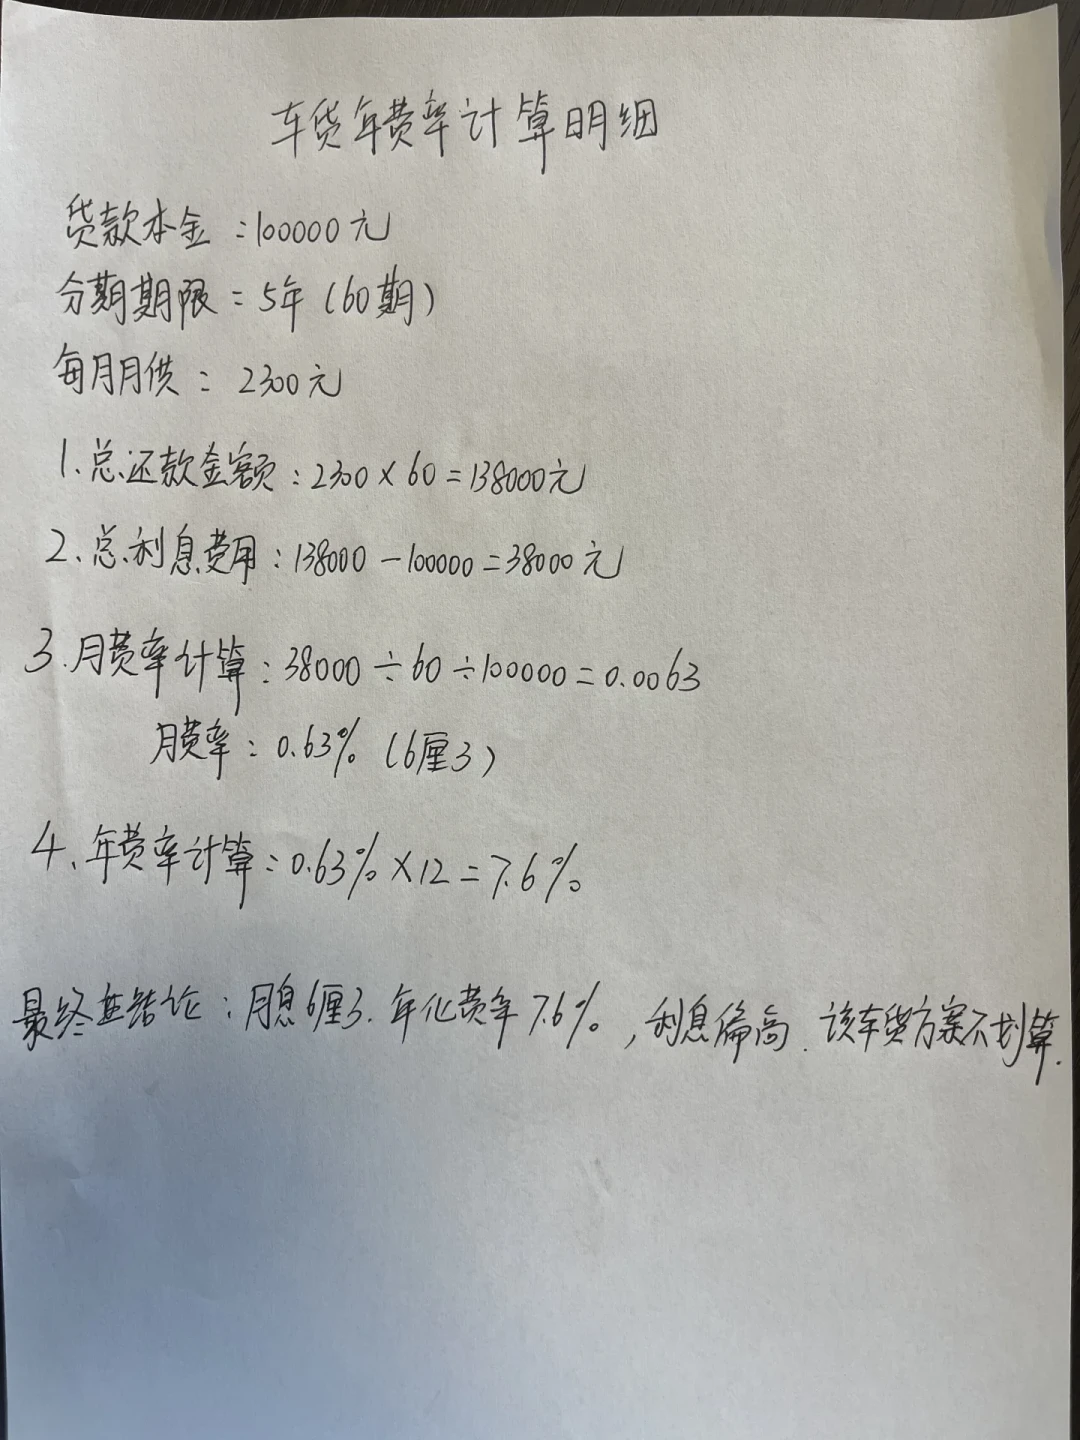 车贷年费率计算明细
贷款本金:100000元
分期期限:5年(60期)
每月月供:2300元
1.总还款金额:2300×60=138000元
2.总利息费用:138000-100000=38000元
3.月费率计算:38000÷60÷100000=0.0063
月费率:0.63%(6厘3)
4、年费率计算:0.63%×12=7.6%
最终结论:月息6厘3.年化费率7.6%,利息偏高.该车贷方案不划算.